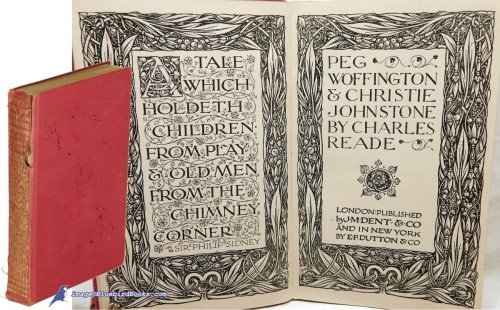 A TALE
WHICH
HOLDETH
CHILDREN
FROM PLAY
& OLD MEN
FROM THE
CHIMNEY
CORNER
SIR PHILIP SIDNEY
PEG
WOFFINGTON
& CHRISTIE
JOHNSTONE
BY CHARLES
READE
LONDON: PUBLISHED
by J.M. DENT & CO
AND IN NEW YORK
BY E.P. DUTTON & CO
image@BluebirdBooks.com